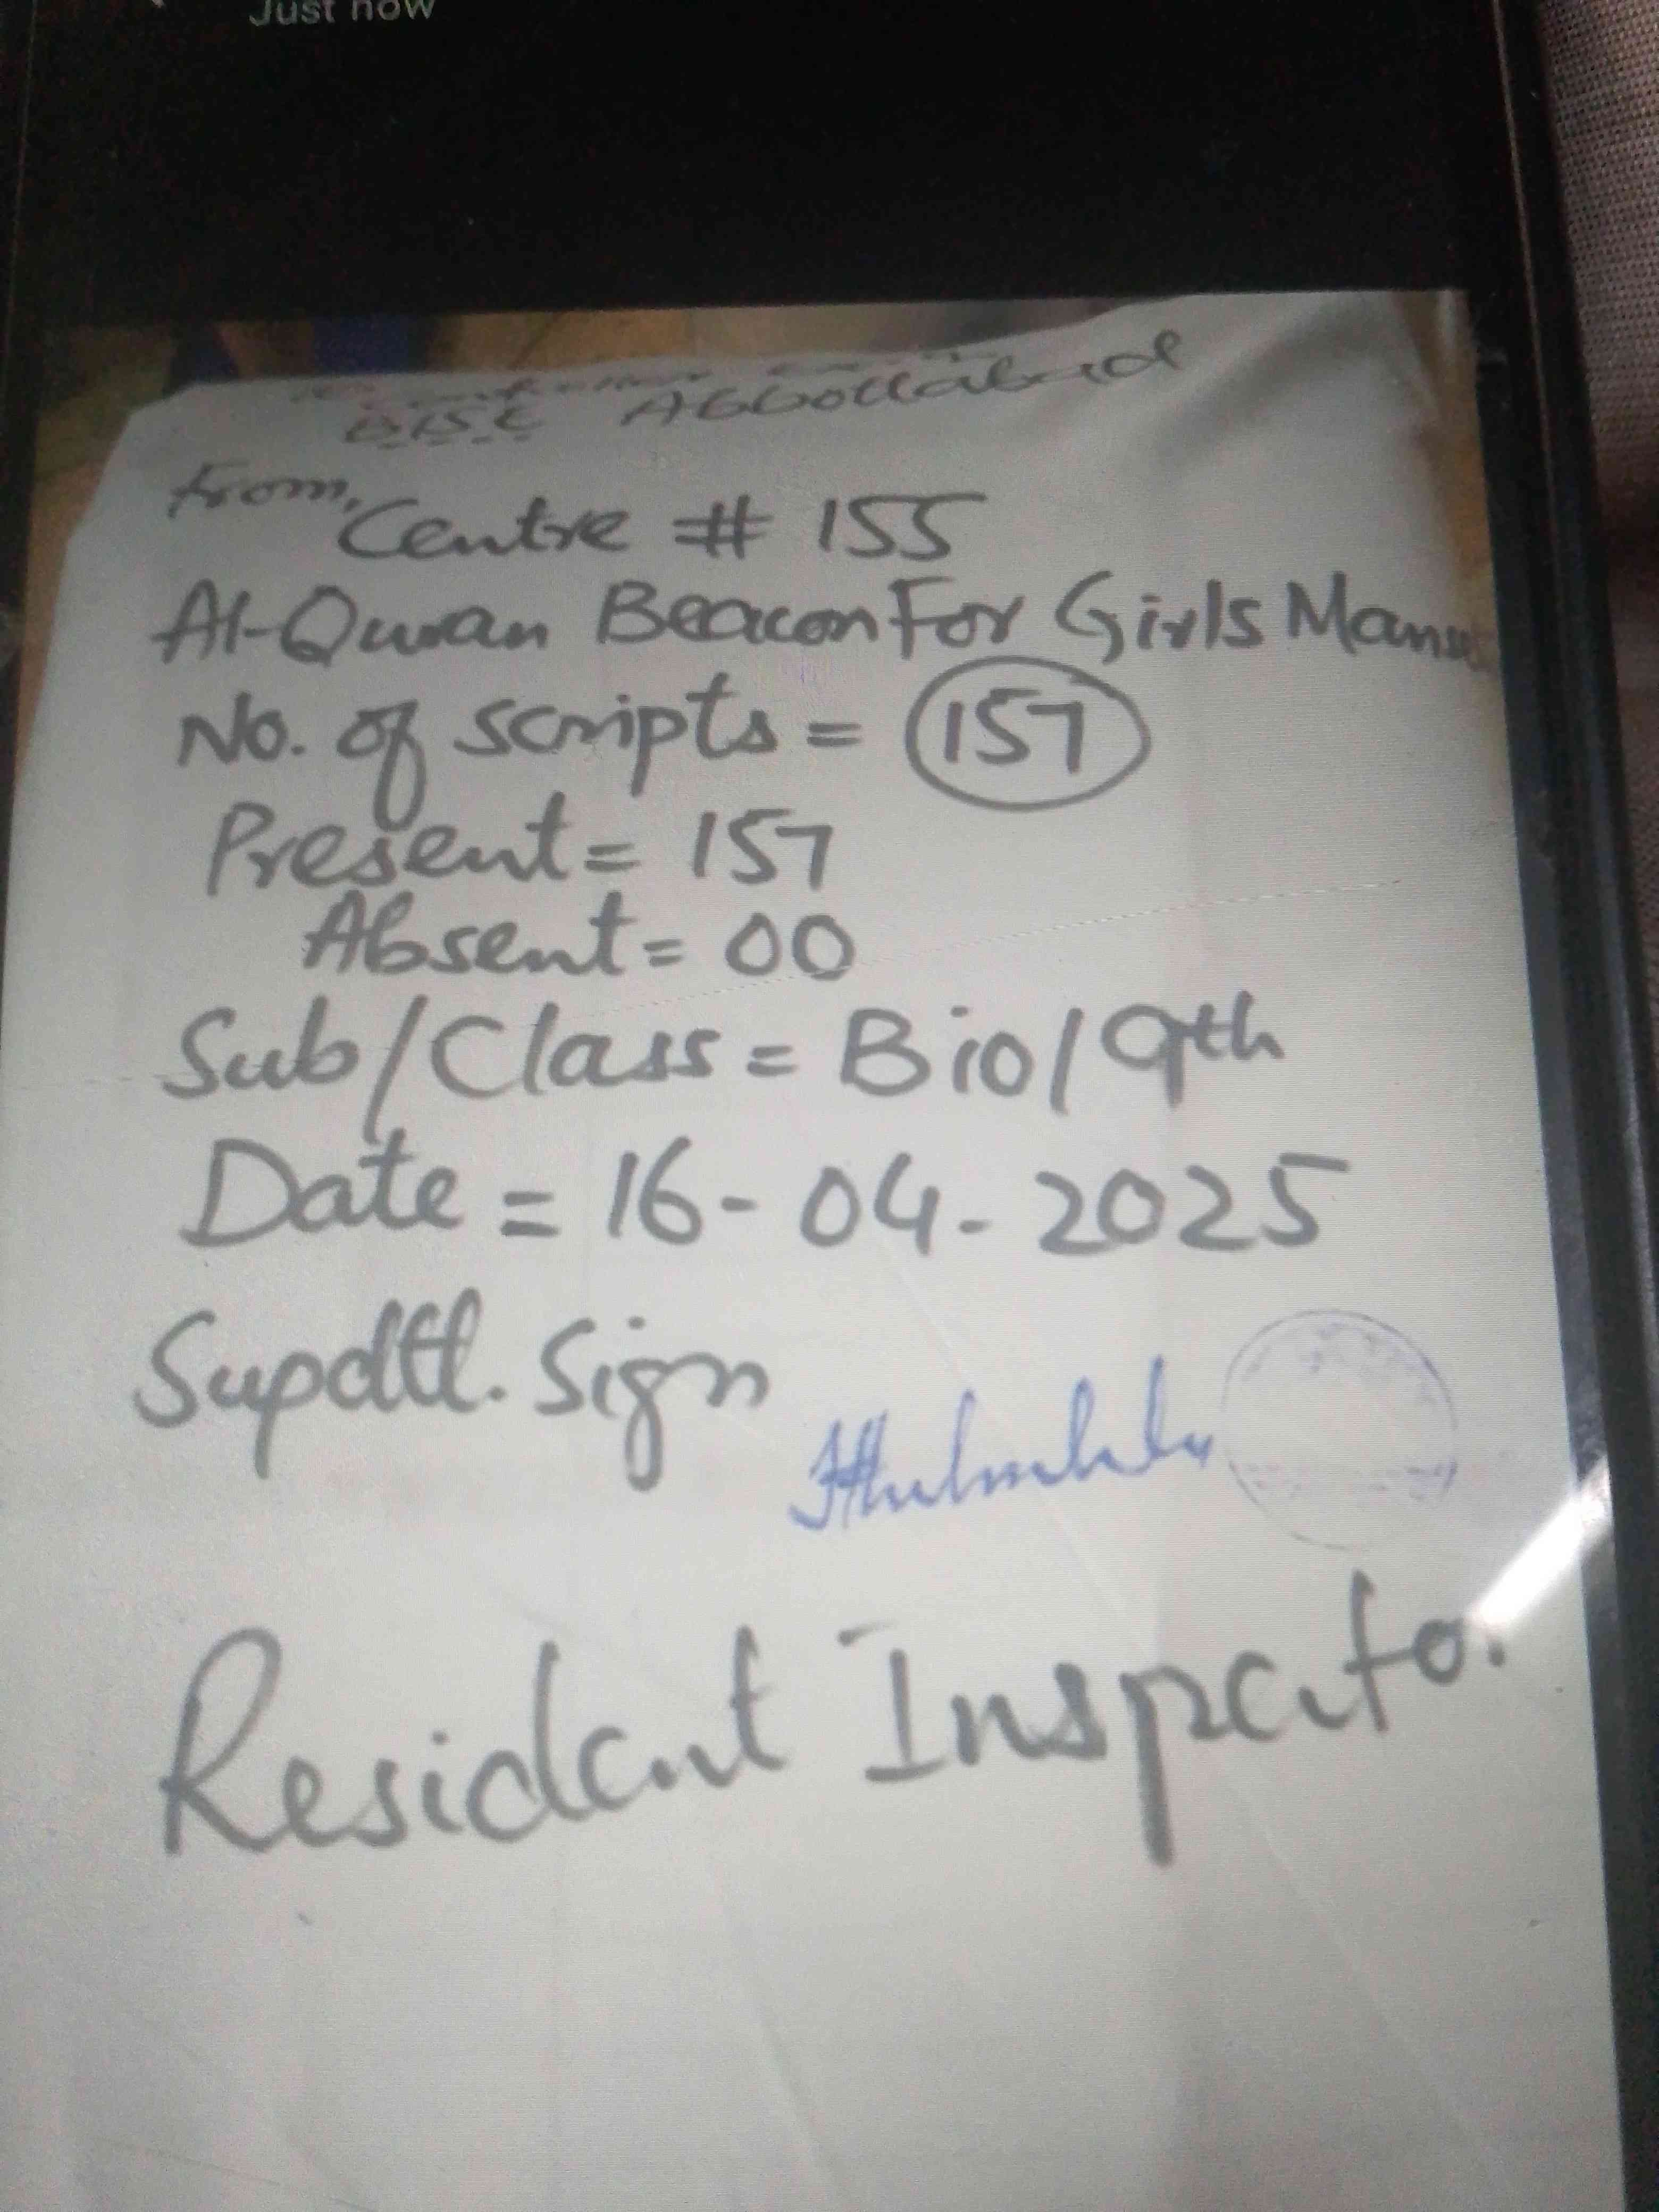 Just now
BISE Abbottabad
From,
Centre # 155
Al-Quran Beacon For Girls
No. of scripts = 157
Present = 157
Absent = 00
Sub/Class = Bio/9th
Date = 16-04-2025
Supdtt. Sign
Resident Inspecto